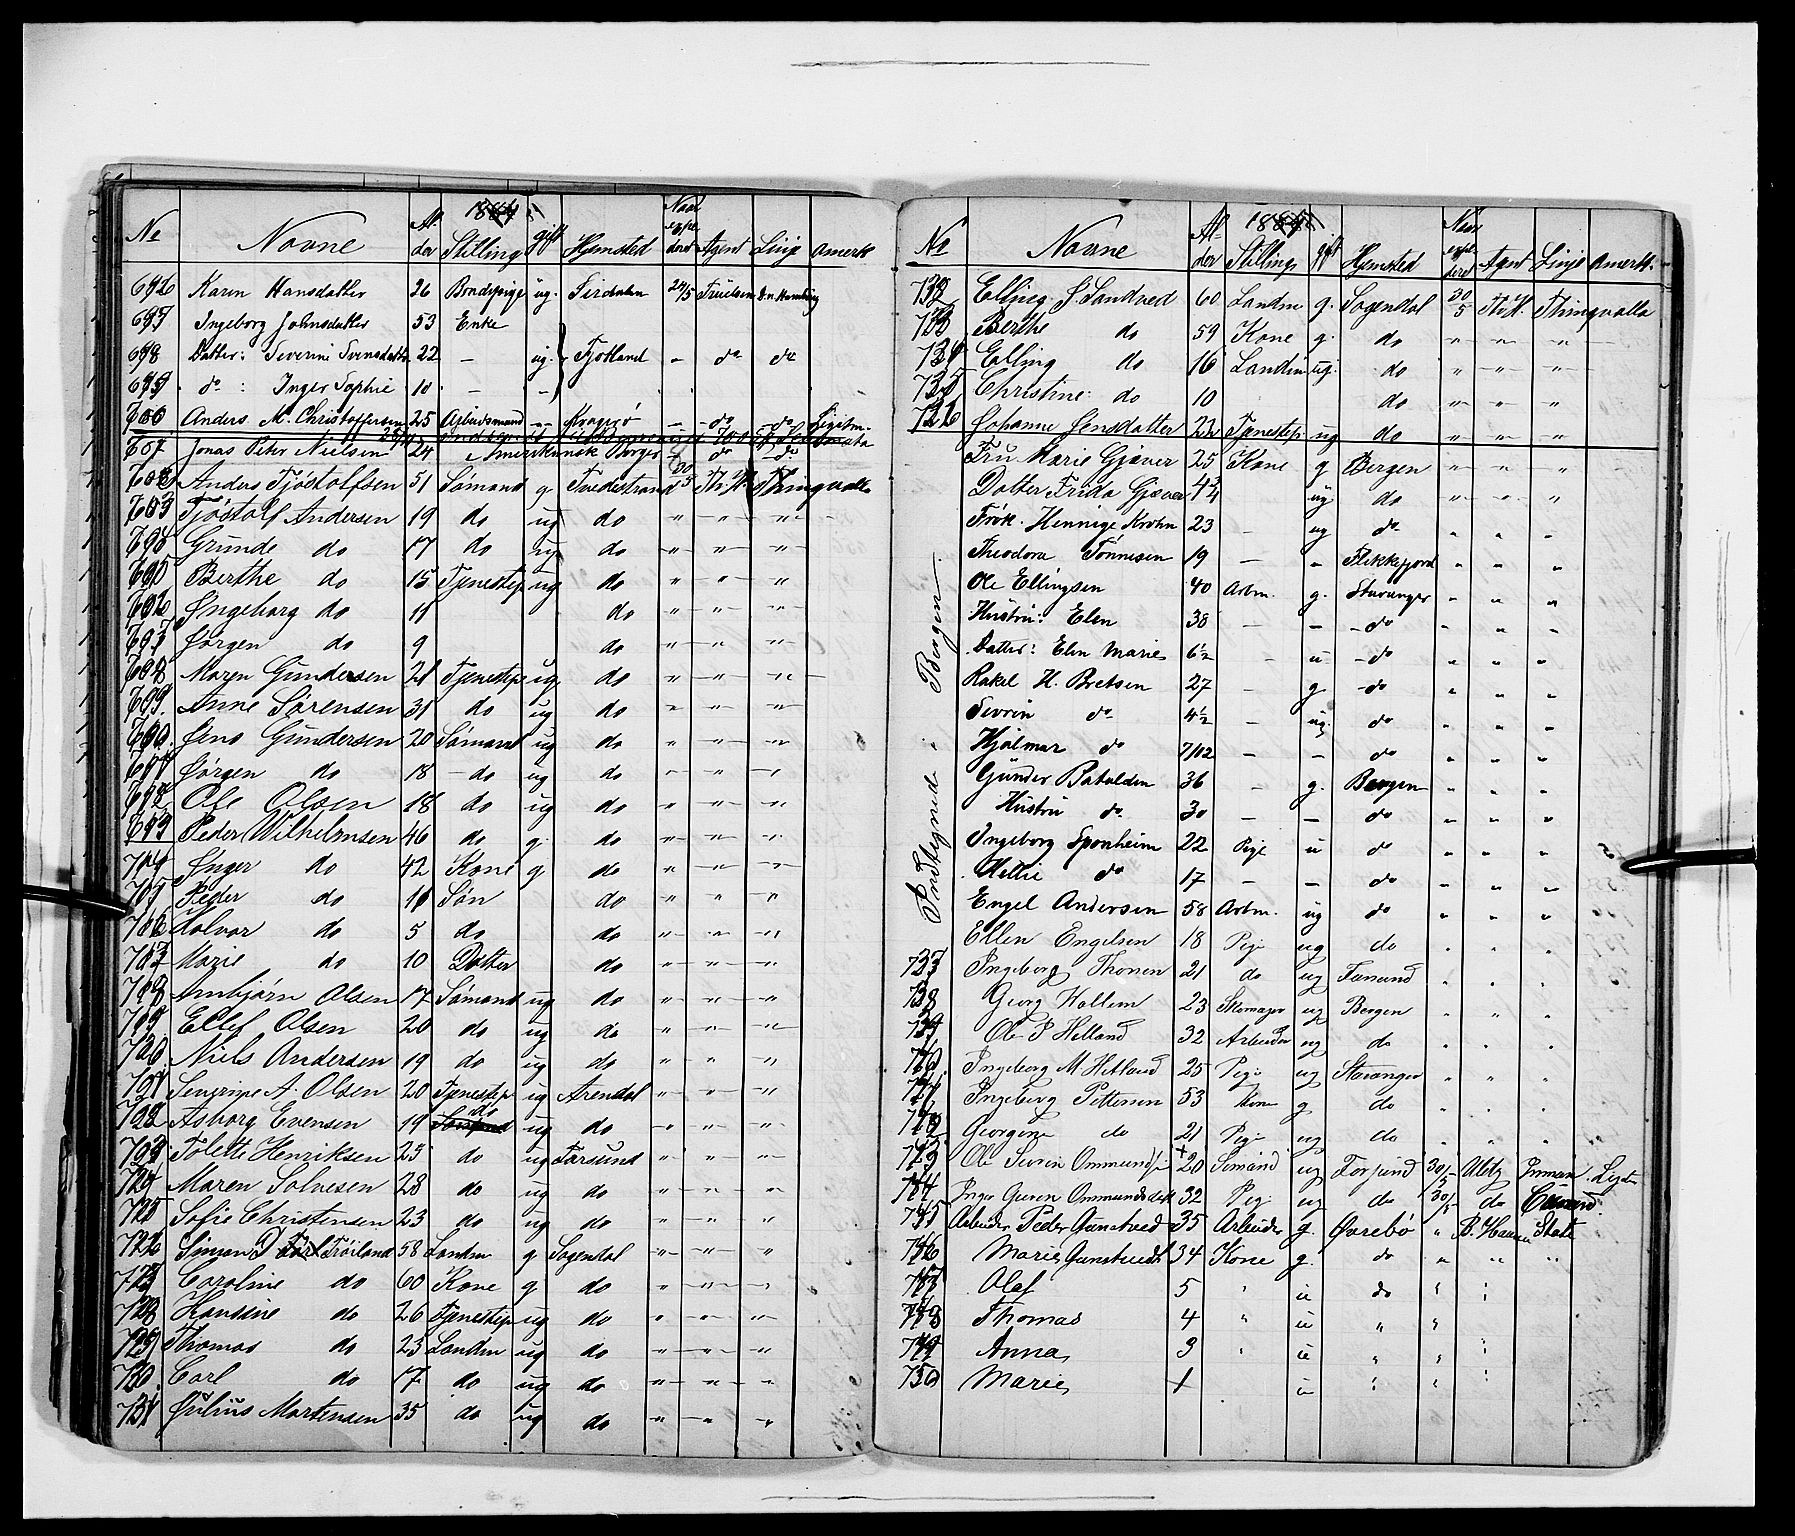 No Navne Al- der Stilling gift Hjemsted Naar expe- deret Agent Linje Anmerk
Karin Hansdatter 26 Bondepige ug. Sirdalen 24/5 Truelsen D.n. Hamburg
Ingeborg Johnsdatter 53 Enke
Datter: Severine Svensdatter 22 — ug. Fjotland - do do
do : Inger Sophie 10 — -
Anders M. Christoffersen 25 Arbeidsmand — Kragerø — do do Legitm.
Jonas Peter Nielsen 24 Amerikansk Borger - do do
Anders Tjøstolfsen 51 Sømand g Tvedestrand 30/5 Th. H. Thingvalla
Tjøstolf Andersen 19 do ug do " " "
Grunde do 17 do ug do " " "
Berthe do 15 Tjenestep ug do " " "
Ingeborg do 11 do " " "
Jørgen do 9 do " " "
Maren Gundersen 21 Tjenestep ug do " " "
Anne Sørensen 31 do ug do " " "
Jens Gundersen 20 Sømand ug do " " "
Jørgen do 18 do ug do " " "
Ole Olsen 18 do ug do " " "
Peder Wilhelmsen 46 do g. do " " "
Inger do 42 Kone g. do " " "
Peder do 11 Søn do " " "
Halvor do 5 do do " " "
Marie do 10 Datter do " " "
Arnbjørn Olsen 17 Sømand ug do " " "
Ellef Olsen 20 do ug do " " "
Niels Andersen 19 do ug do " " "
Severine A. Olsen 20 Tjenestep ug Arendal " " "
Asborg Evensen 19 do ug do " " "
Tolette Henriksen 25 do ug Farsund " " "
Maren Solvesen 28 do ug do " " "
Sofie Christensen 23 do ug do " " "
Simon P Frøiland 58 Landm g Sogendal " " "
Caroline do 60 Kone g do " " "
Hansine do 26 Tjenestep ug do " " "
729 Thomas do 23 Landm ug do " " "
730 Carl do 17 do ug do " " "
731 Julius Martensen 35 do ug do " " "
No Navne Al- der Stilling gift Hjemsted Naar expe- deret Agent Linje Anmerk.
732 Elling J. Sandved 60 Landm g. Sogendal 30/5 Th. H. Thingvalla
733 Berthe do 59 Kone g. do " " "
734 Elling do 16 Landm ug. do " " "
735 Christine do 10 do " " "
736 Johanne Jensdatter 22 Tjenestep ug do " " "
Indtegnede i Bergen.
Fru Marie Gjæver 25 Kone g Bergen " " "
Datter Frida Gjæver 4 3/4 ug do " " "
Frøk. Hennige Krohn 23 — ug do " " "
Theodora Tønnesen 19 — " Flekkefjord " " "
Ole Ellingsen 40 Arbm. g. Stavanger " " "
Hustru: Elen 38 — — do " " "
Datter: Elen Marie 6 1/2 - u do " " "
Rakel H. Bretsen 27 - g. do " " "
Sevrin do 4 1/2 - ug. do " " "
Hjalmar do 7/12 — - do " " "
Gunder Batalden 36 - g. Bergen " " "
Hustru do 30 — — do " " "
Ingeborg Sponheim 22 Pige u do " " "
do 17 — — do " " "
Engel Andersen 58 Arbm. ug do " " "
Ellen Engelsen 18 Pige ug do " " "
737 Ingeborg Thonen 21 do ug " " "
738 Georg Hallem 23 Skomager ug Bergen " " "
739 Ole P Helland 32 Arbeider ug do " " "
740 Ingeborg M. Hetland 25 Pige ug Stavanger " " "
741 Ingeborg Pettersen 53 Kone g do " " "
742 Georgine do 21 Pige ug do " " "
743 Ole Severin 20 Sømand ug Farsund 30/5 Inman Legt.
744 Inger Guren Ommundsdatt 32 Pige ug do 30/5 do Cunard
745 Arbeider Peder Gunstved 35 Arbeider g. Øvrebø " B. Hansen State
746 Marie Gunstvedt 34 Kone g. do " " "
747 Olaf 5 " u do " "
748 Thomas 4 " u " "
749 Anna 3 " u " " "
750 Marie 1 u " " "